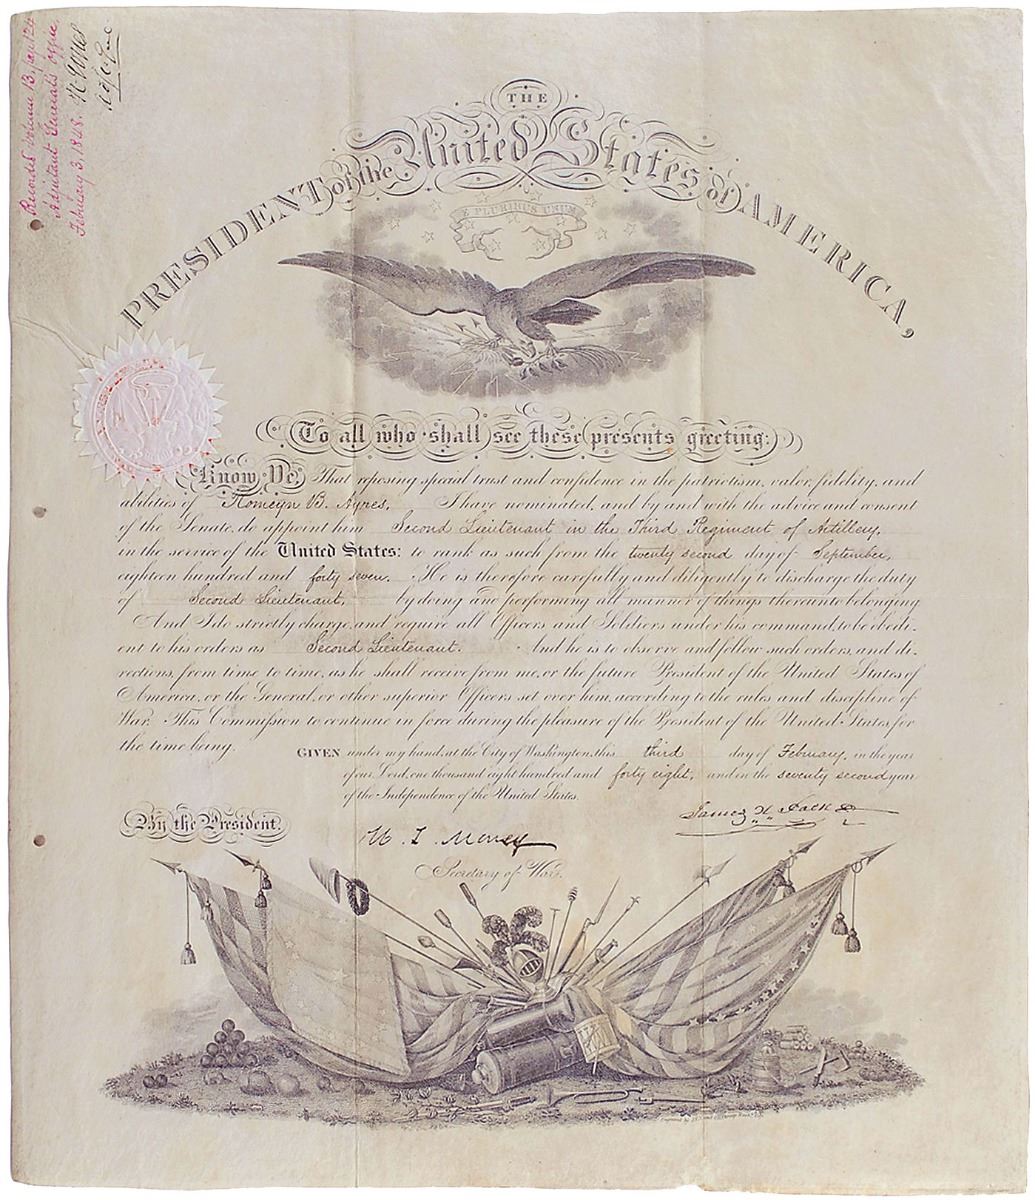 Recorded Volume B. page 124
Adjutant General's Office,
February 3, 1848.
R. Jones
Adj. Gen.
THE
PRESIDENT of the United States of AMERICA,
E PLURIBUS UNUM
To all who shall see these presents greeting:
Know Ye, That reposing special trust and confidence in the patriotism, valor, fidelity, and
abilities of Romeyn B. Ayres, I have nominated, and by and with the advice and consent
of the Senate, do appoint him Second Lieutenant in the Third Regiment of Artillery,
in the service of the United States: to rank as such from the twenty second day of September,
eighteen hundred and forty seven. He is therefore carefully and diligently to discharge the duty
of Second Lieutenant, by doing and performing all manner of things thereunto belonging
And I do strictly charge, and require all Officers and Soldiers under his command, to be obedi-
ent to his orders as Second Lieutenant. And he is to observe and follow such orders, and di-
rections, from time to time, as he shall receive from me, or the future President of the United States of
America, or the General, or other superior Officers set over him, according to the rules and discipline of
War. This Commission to continue in force during the pleasure of the President of the United States, for
the time being.
GIVEN under my hand, at the City of Washington, this third day of February, in the year
of our Lord, one thousand eight hundred and forty eight, and in the seventy second year
of the Independence of the United States.
By the President.
James K. Polk
W. L. Marcy
Secretary of War.